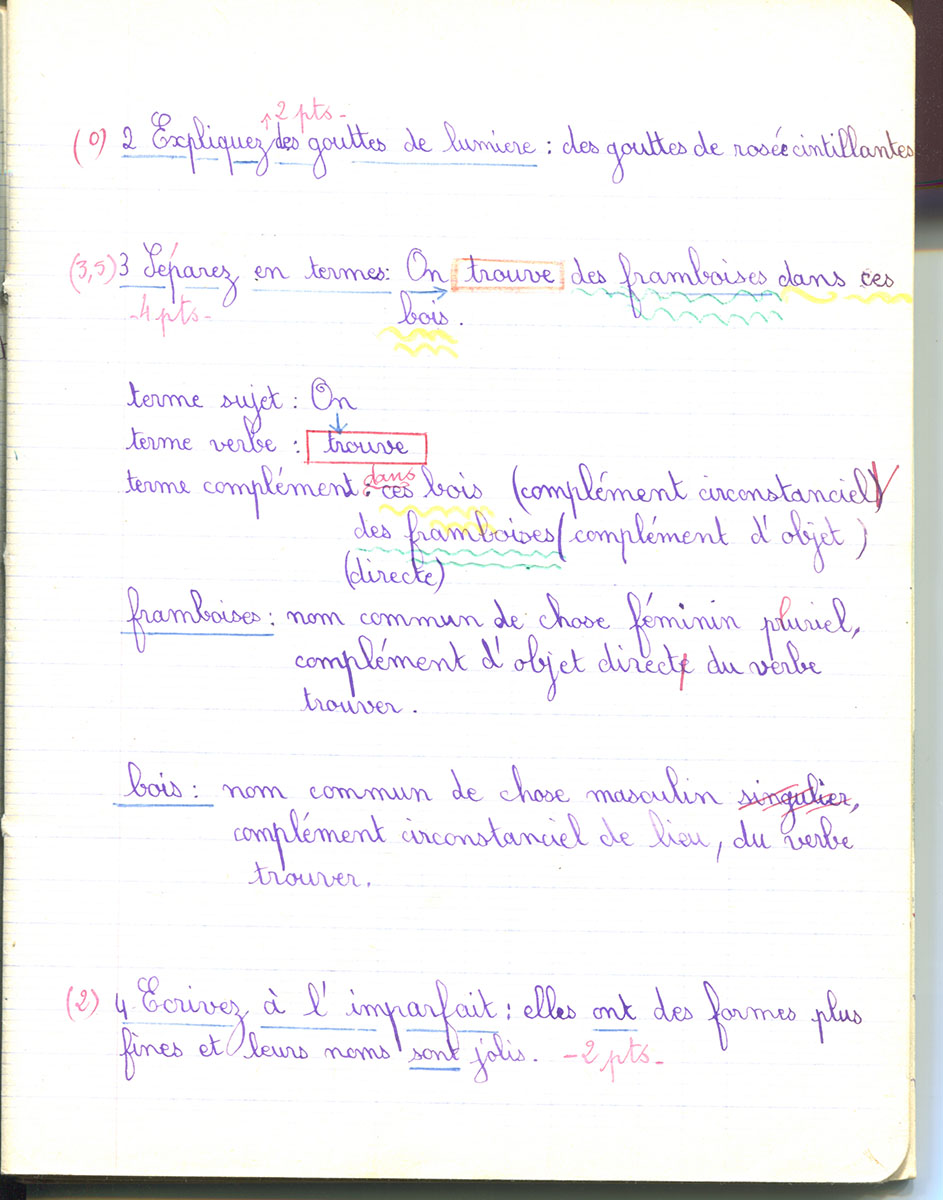 2 pts-
(0) 2 Expliquez des gouttes de lumiere : des gouttes de rosée cintillantes
(3,5) 3 Séparez en termes : On trouve des framboises dans ces
-4 pts- bois.
terme sujet : On
terme verbe : trouve
dans
terme complément : ces bois (complément circonstanciel)
des framboises (complément d'objet)
(directe)
framboises : nom commun de chose féminin pluriel,
complément d'objet directe du verbe
trouver.
bois : nom commun de chose masculin singulier,
complément circonstanciel de lieu, du verbe
trouver.
(2) 4 Ecrivez à l'imparfait : elles ont des formes plus
fines et leurs noms sont jolis. -2 pts-